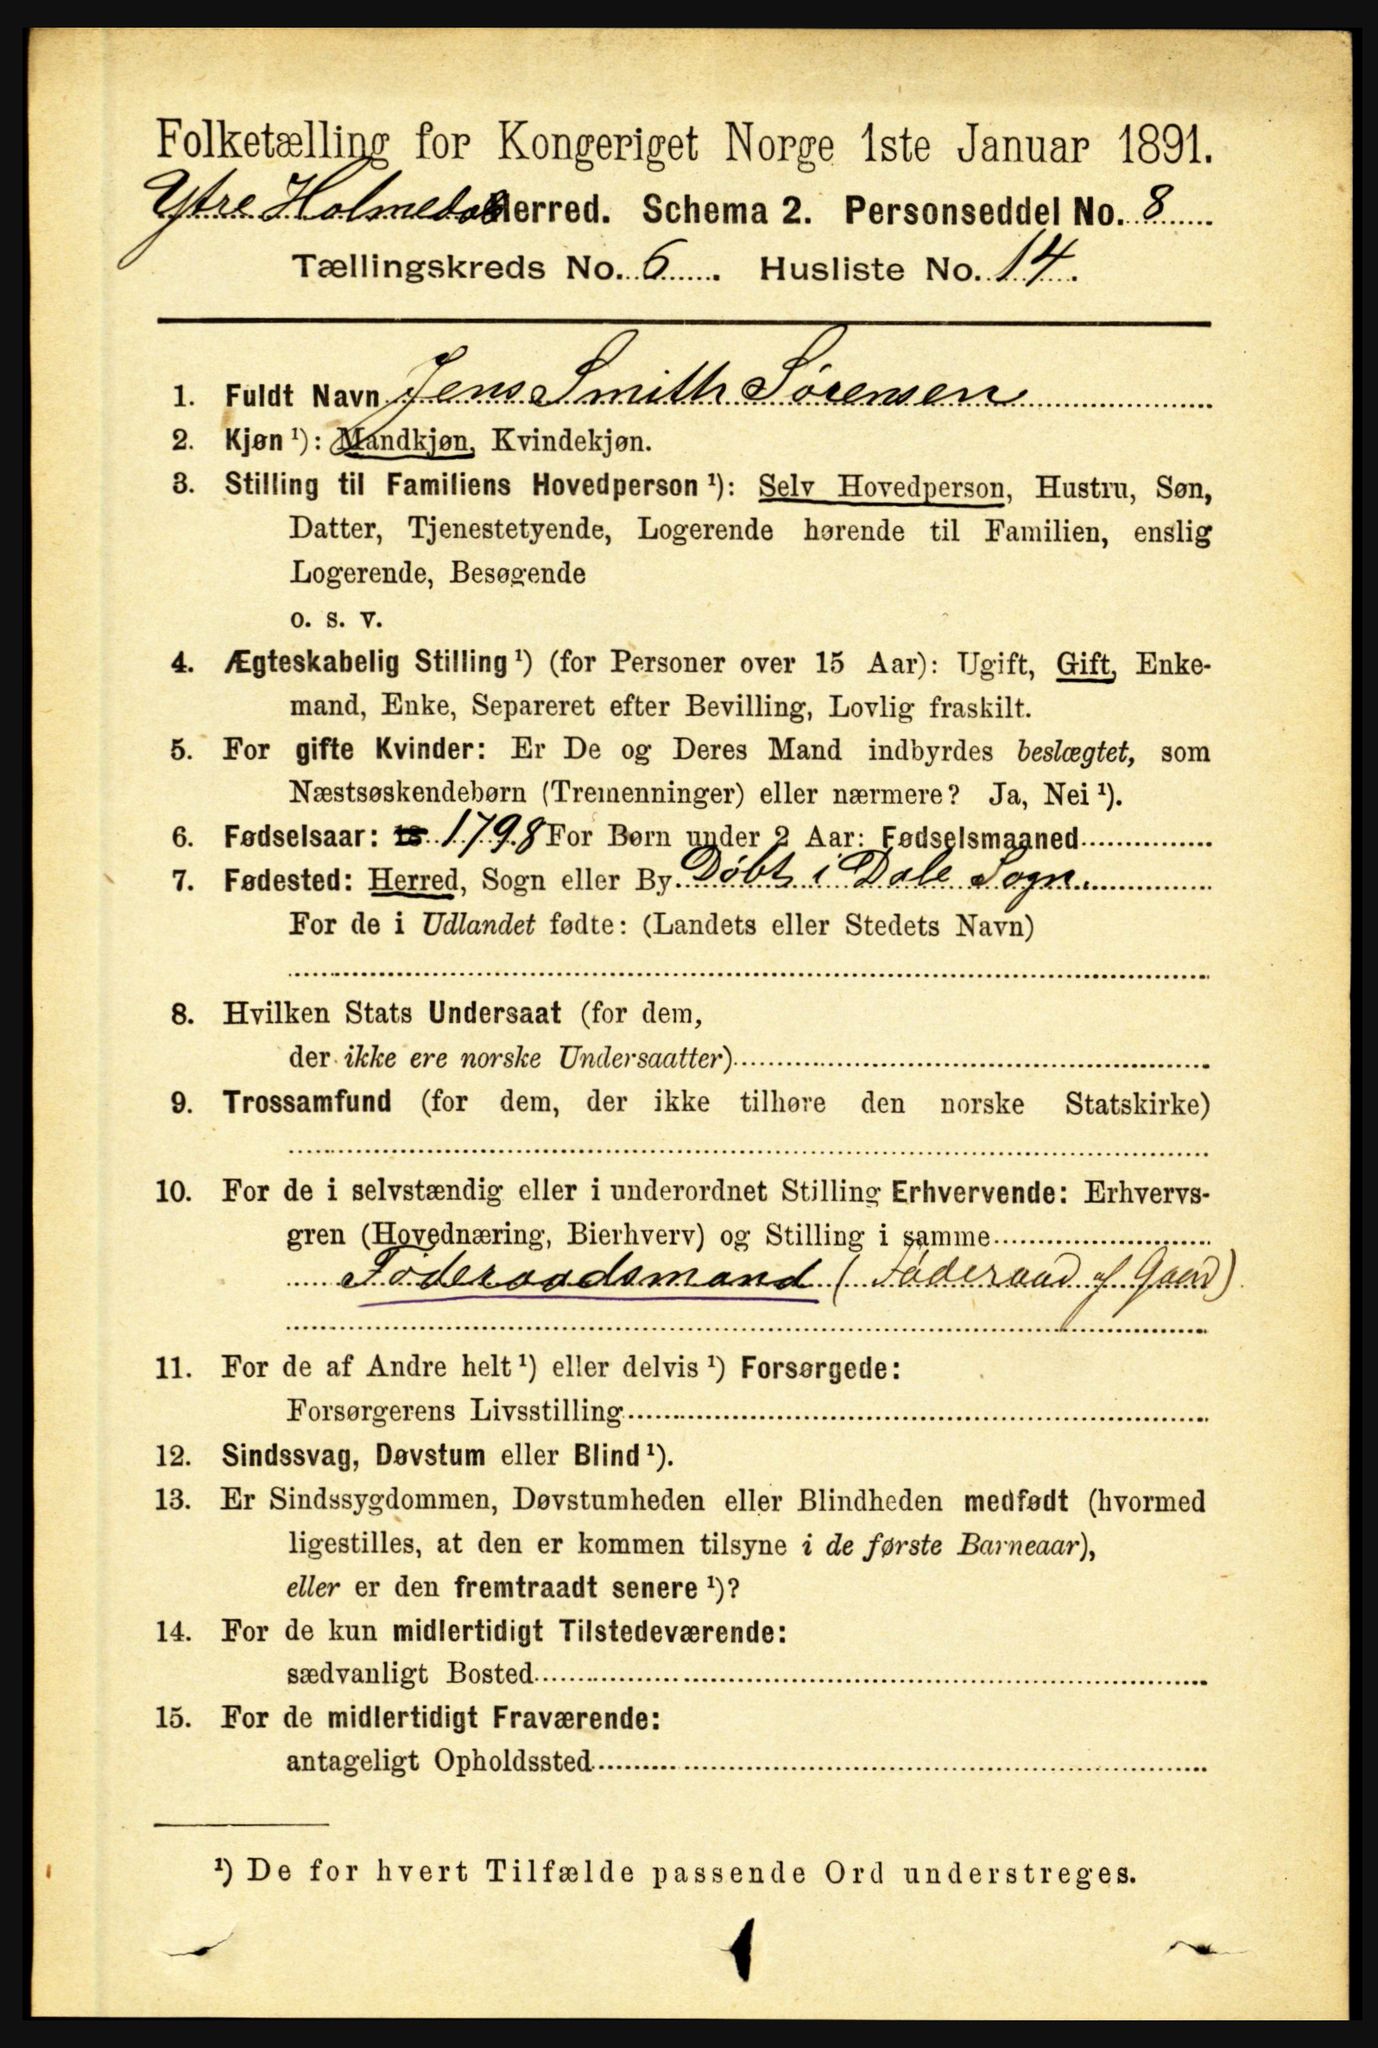 Folketælling for Kongeriget Norge 1ste Januar 1891.
Ytre Holmedal Herred. Schema 2. Personseddel No. 8
Tællingskreds No. 6. Husliste No. 14.
1. Fuldt Navn Jens Smith Sörensen
2. Kjøn ¹): Mandkjøn, Kvindekjøn.
3. Stilling til Familiens Hovedperson ¹): Selv Hovedperson, Hustru, Søn,
Datter, Tjenestetyende, Logerende hørende til Familien, enslig
Logerende, Besøgende
o. s. v.
4. Ægteskabelig Stilling ¹) (for Personer over 15 Aar): Ugift, Gift, Enke-
mand, Enke, Separeret efter Bevilling, Lovlig fraskilt.
5. For gifte Kvinder: Er De og Deres Mand indbyrdes beslægtet, som
Næstsøskendebørn (Tremenninger) eller nærmere? Ja, Nei ¹).
6. Fødselsaar: 18 1798 For Børn under 2 Aar: Fødselsmaaned
7. Fødested: Herred, Sogn eller By Döbt i Dale Sogn.
For de i Udlandet fødte: (Landets eller Stedets Navn)
8. Hvilken Stats Undersaat (for dem,
der ikke ere norske Undersaatter)
9. Trossamfund (for dem, der ikke tilhøre den norske Statskirke)
10. For de i selvstændig eller i underordnet Stilling Erhvervende: Erhvervs-
gren (Hovednæring, Bierhverv) og Stilling i samme
Föderaadsmand (Föderaad af Gaard)
11. For de af Andre helt ¹) eller delvis ¹) Forsørgede:
Forsørgerens Livsstilling
12. Sindssvag, Døvstum eller Blind ¹).
13. Er Sindssygdommen, Døvstumheden eller Blindheden medfødt (hvormed
ligestilles, at den er kommen tilsyne i de første Barneaar),
eller er den fremtraadt senere ¹)?
14. For de kun midlertidigt Tilstedeværende:
sædvanligt Bosted
15. For de midlertidigt Fraværende:
antageligt Opholdssted
¹) De for hvert Tilfælde passende Ord understreges.